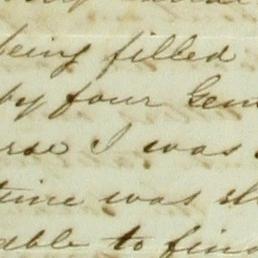 being filled
by four Gen
I was
time was
able to find